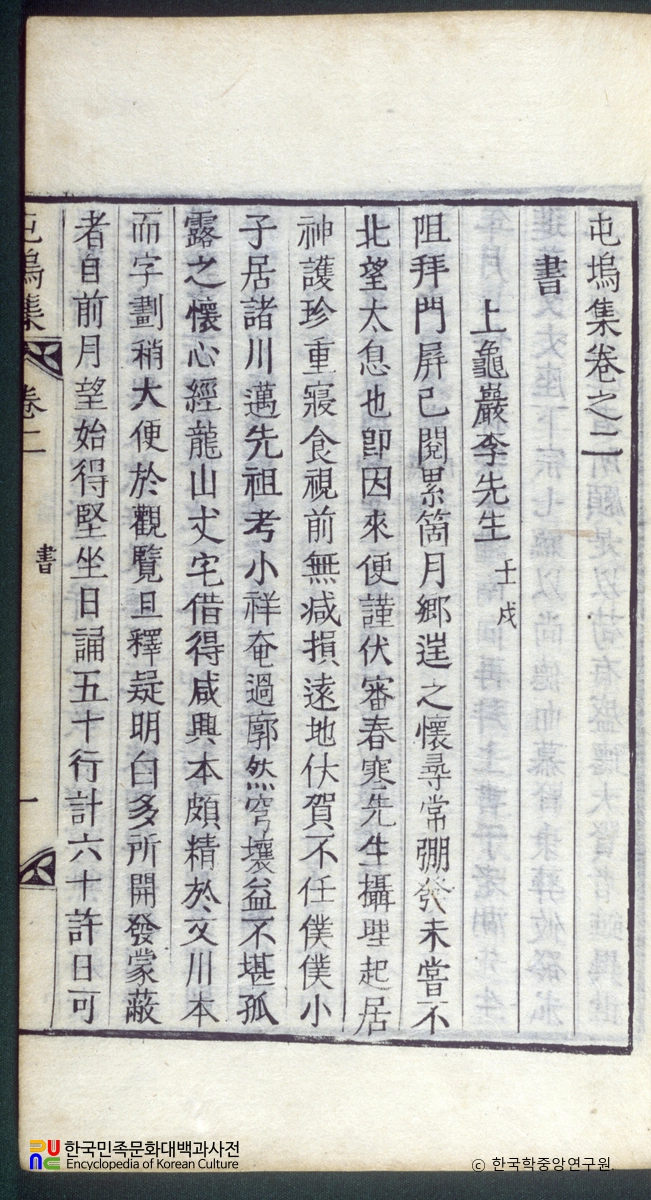 屯塢集卷之二
書
上龜巖李先生 壬戌
阻拜門屛已閱累箇月鄉𨓏之懷尋常弸發未嘗不
北望太息也卽因來便謹伏審春寒先生攝理起居
神護珍重寢食視前無减損遠地伏賀不任僕僕小
子居諸川邁先祖考小祥奄過廓然穹壤益不堪孤
露之懷心經龍山丈宅借得咸興本頗精於交川本
而字劃稍大便於觀覽且釋疑明白多所開發蒙蔽
者自前月望始得堅坐日誦五十行計六十許日可
屯塢集
卷二
書
一
한국민족문화대백과사전
Encyclopedia of Korean Culture
© 한국학중앙연구원